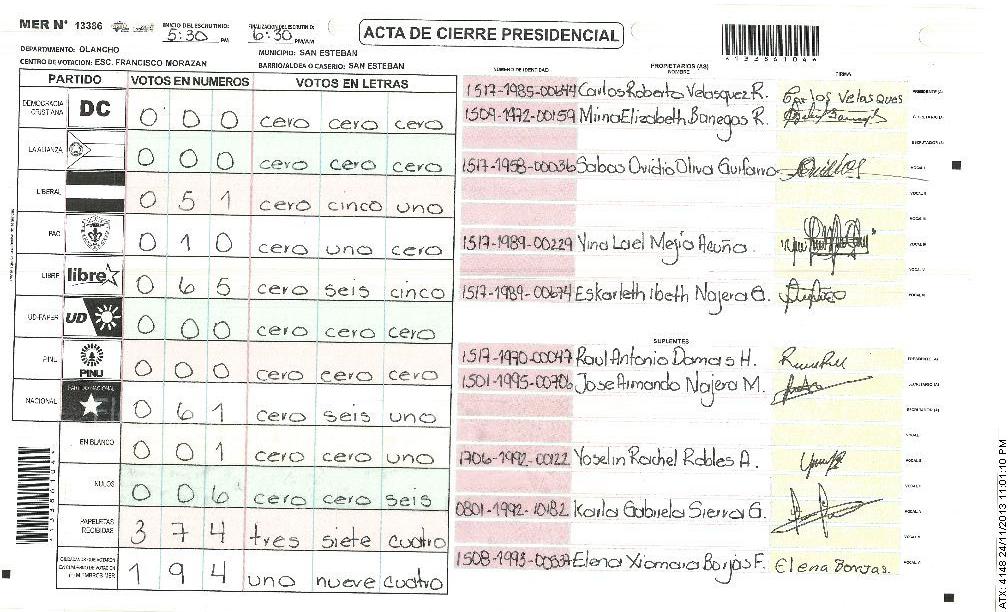 MER N° 13386 INICIO DEL ESCRUTINIO: 5:30 PM FINALIZACION ESCRUTINIO: 6:30 PM/AM
ACTA DE CIERRE PRESIDENCIAL
41338610464
DEPARTAMENTO: OLANCHO MUNICIPIO: SAN ESTEBAN
CENTRO DE VOTACION: ESC. FRANCISCO MORAZAN BARRIO/ALDEA O CASERIO: SAN ESTEBAN
PARTIDO VOTOS EN NUMEROS VOTOS EN LETRAS
DEMOCRACIA CRISTIANA DC 0 0 0 cero cero cero
LA ALIANZA 0 0 0 cero cero cero
LIBERAL 0 5 1 cero cinco uno
PAC 0 1 0 cero uno cero
LIBRE libre 0 6 5 cero seis cinco
UD-FAPER UD 0 0 0 cero cero cero
PINU PINU 0 0 0 cero cero cero
NACIONAL PARTIDO NACIONAL 0 6 1 cero seis uno
EN BLANCO 0 0 1 cero cero uno
NULOS 0 0 6 cero cero seis
PAPELETAS RECIBIDAS 3 7 4 tres siete cuatro
1 9 4 uno nueve cuatro
NUMERO DE IDENTIDAD PROPIETARIOS (AS) NOMBRE FIRMA
1517-1985-00644 Carlos Roberto Velasquez R. Carlos Velasques PRESIDENTE (A)
1509-1972-00159 Mirna Elizabeth Banegas R.
1517-1958-00036 Sabas Ovidio Oliva
1517-1989-00229 Yina Lael Mejia Acuña
1517-1989-00674 Eskarleth ibeth Najera G.
SUPLENTES
1517-1970-00047 Raul Antonio Damas H. PRESIDENTE (A)
1501-1995-00706 Jose Armando Najera M.
1706-1992-00122 Yoselin Rachel Robles A.
0801-1992-10182 Karla Gabriela Sierra G.
Elena Xiomara Borjas F. Elena Borjas.
ATX: 4148 24/11/2013 11:01:10 PM